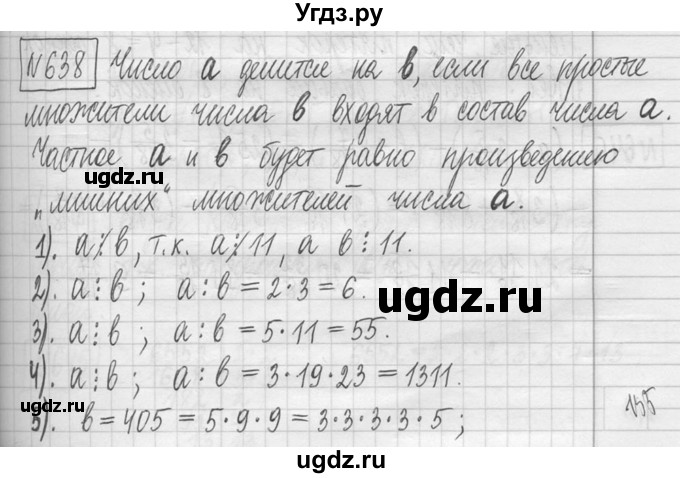 Угдз.ру
№638 Число а делится на в, если все простые
множители числа в входят в состав числа а.
Частное а и в будет равно произведению
"лишних" множителей числа а.
1). а⋮̸в, т.к. а⋮̸11, а в⋮11.
2). а⋮в; а:в=2·3=6.
3). а⋮в; а:в=5·11=55.
4). а⋮в; а:в=3·19·23=1311.
5). в=405=5·9·9=3·3·3·3·5;
155
ugdz.ru
ugdz.ru
ugdz.ru
ugdz.ru
ugdz.ru